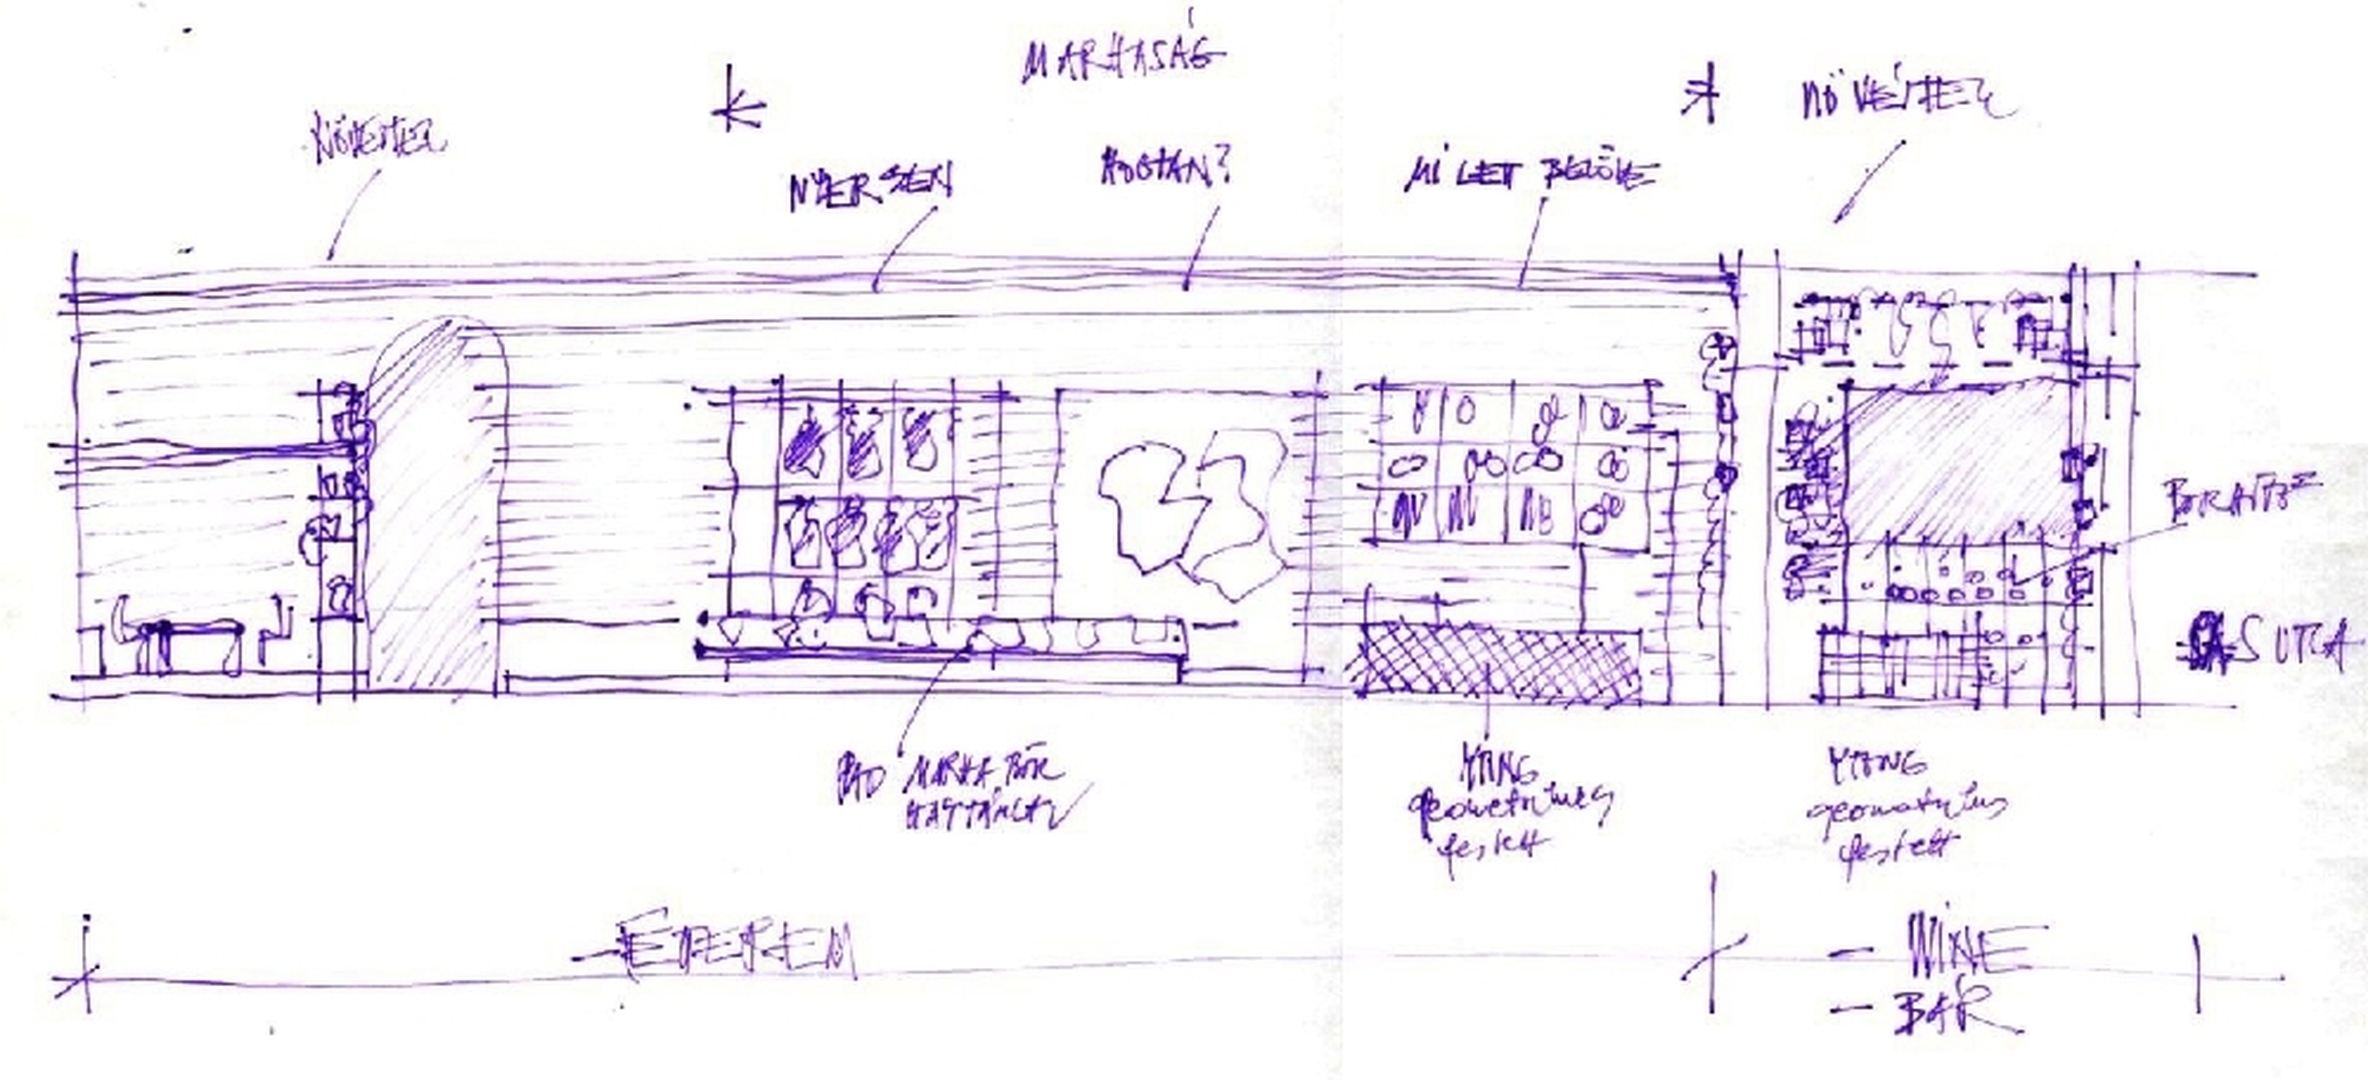 MARHASÁG
NÖVÉNYEK
NÖVÉNYEK
NYERSEN
HOGYAN?
MI LETT BELŐLE
PAD MARHABŐR
HÁTTÁMLA
YTONG
geometrikus
festett
YTONG
geometrikus
festett
UTCA
ÉTTEREM
WINE
BÁR